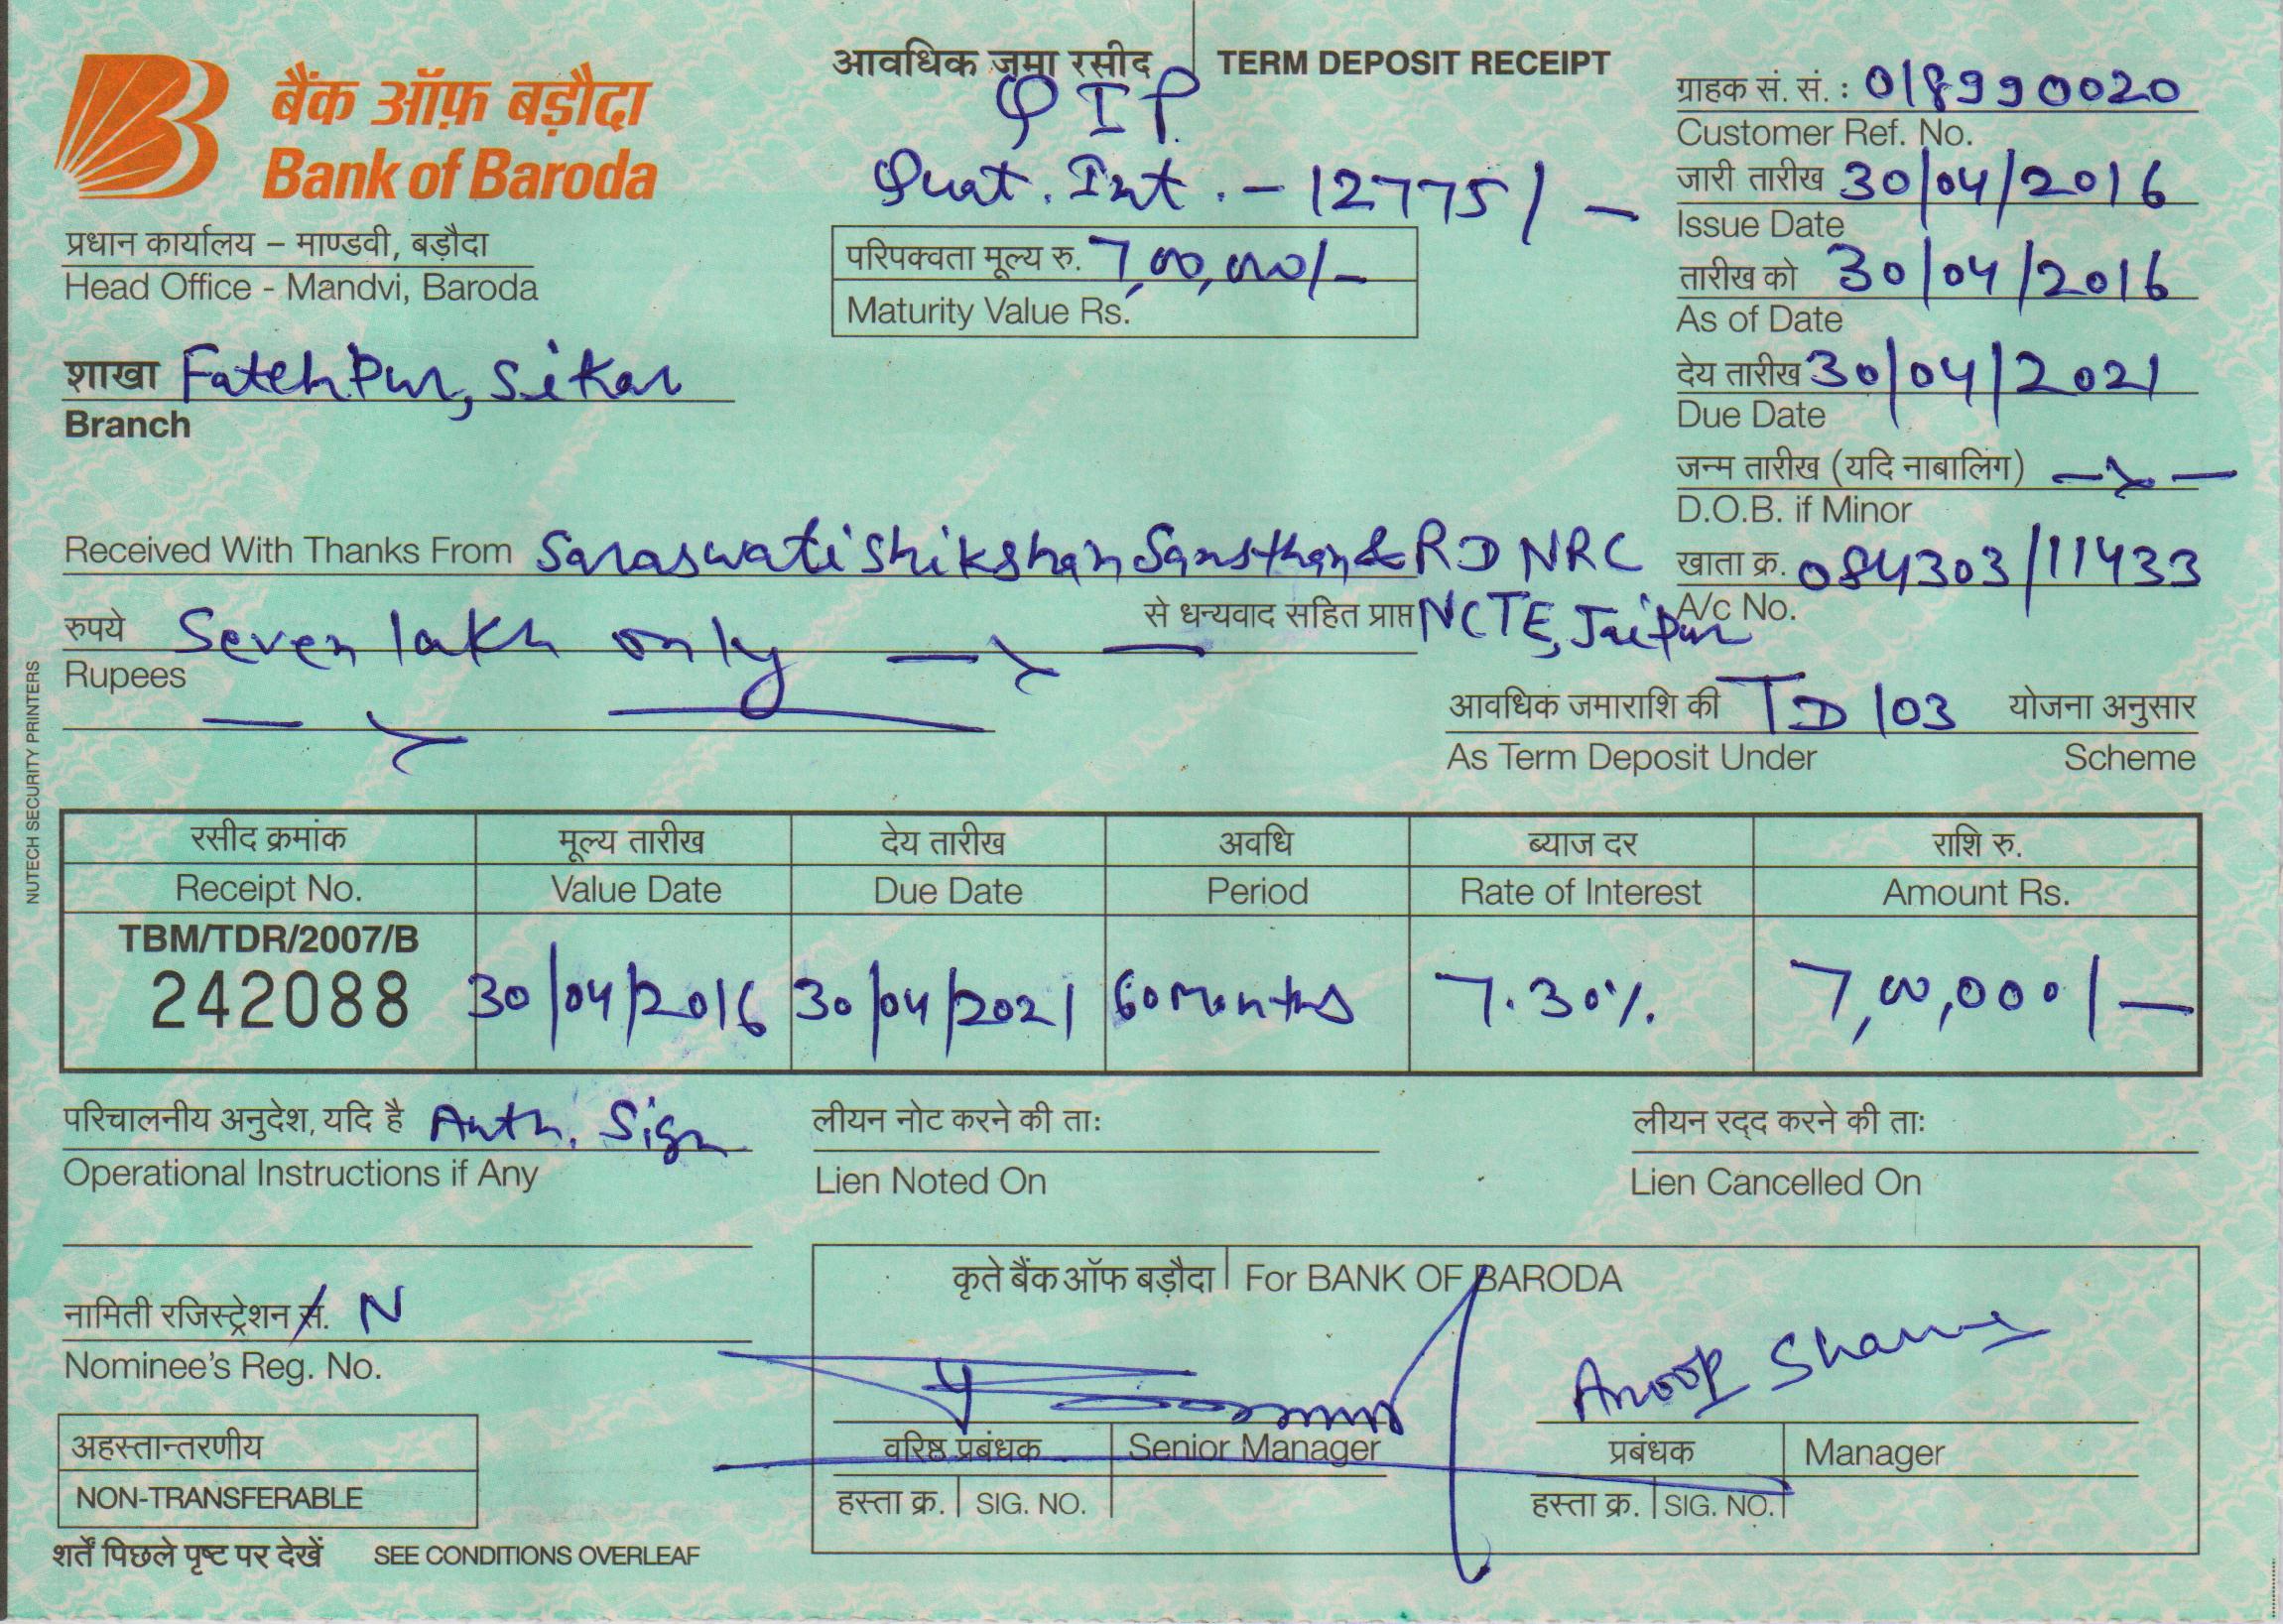 बैंक ऑफ़ बड़ौदा
Bank of Baroda
प्रधान कार्यालय – माण्डवी, बड़ौदा
Head Office - Mandvi, Baroda
शाखा Fatehpur, Sikar
Branch
आवधिक जमा रसीद | TERM DEPOSIT RECEIPT
QIP
Quat. Int. - 12775/-
परिपक्वता मूल्य रु. 7,00,000/-
Maturity Value Rs.
ग्राहक सं. सं. : 018990020
Customer Ref. No.
जारी तारीख 30/04/2016
Issue Date
तारीख को 30/04/2016
As of Date
देय तारीख 30/04/2021
Due Date
जन्म तारीख (यदि नाबालिग)
D.O.B. if Minor
खाता क्र. 084303/11433
A/c No.
Received With Thanks From Saraswati Shikshan Sansthan & RD NRC
से धन्यवाद सहित प्राप्त NCTE, Jaipur
रुपये Seven lakh only
Rupees
आवधिक जमाराशि की TD 103 योजना अनुसार
As Term Deposit Under Scheme
NUTECH SECURITY PRINTERS
रसीद क्रमांक मूल्य तारीख देय तारीख अवधि ब्याज दर राशि रु.
Receipt No. Value Date Due Date Period Rate of Interest Amount Rs.
TBM/TDR/2007/B
242088 30/04/2016 30/04/2021 60 Months 7.30% 7,00,000/-
परिचालनीय अनुदेश, यदि है Auth. Sign
Operational Instructions if Any
लीयन नोट करने की ताः
Lien Noted On
लीयन रद्द करने की ताः
Lien Cancelled On
नामिती रजिस्ट्रेशन सं. N
Nominee's Reg. No.
कृते बैंक ऑफ बड़ौदा | For BANK OF BARODA
Anoop Sharma
वरिष्ठ प्रबंधक | Senior Manager
प्रबंधक | Manager
हस्ता क्र. | SIG. NO. |
हस्ता क्र. | SIG. NO. |
अहस्तान्तरणीय
NON-TRANSFERABLE
शर्तें पिछले पृष्ट पर देखें SEE CONDITIONS OVERLEAF